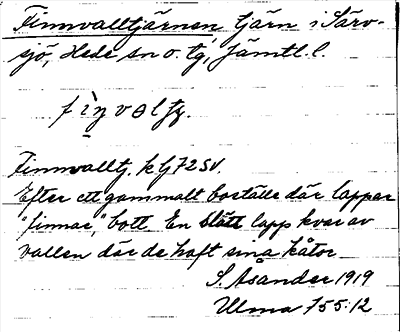 Finnvalltjärnen, tjärn i Särv-
sjö, Hede sn o. tg, Jämtl. l.
Finnvalltj. k bl 72 SV.
Efter ett gammalt boställe där lappar
"finnar," bott. En slätt lapp kvar av
vallen där de haft sina kåtor
S. Asånder 1919
Ulma 755:12